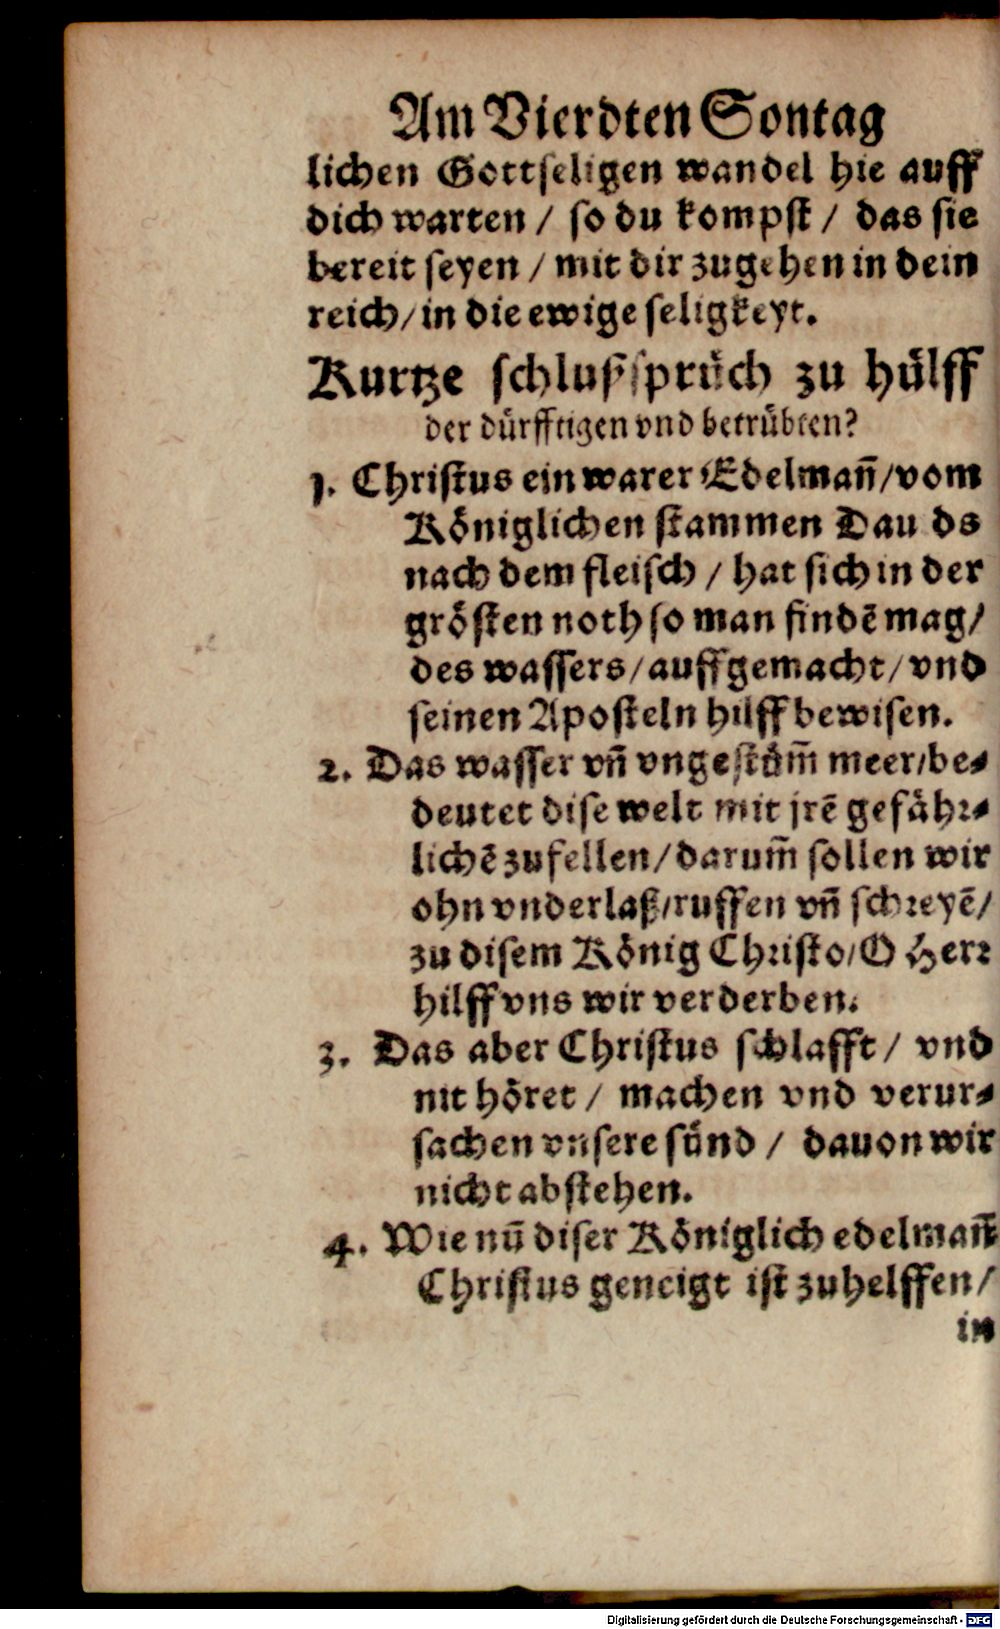 Am Vierdten Sontag
lichen Gottseligen wandel hie auff
dich warten / so du kompst / das sie
bereit seyen / mit dir zugehen in dein
reich / in die ewige seligkeyt.
Kurtze schlußsprüch zu hülff
der dürfftigen vnd betrübten?
1. Christus ein warer Edelmañ / vom
Königlichen stammen Dau ds
nach dem fleisch / hat sich in der
grösten noth so man findē mag /
des wassers / auffgemacht / vnd
seinen Aposteln hilff bewisen.
2. Das wasser vñ vngestüm̃ meer / be-
deutet dise welt mit jrē gefähr-
lichē zufellen / darum̃ sollen wir
ohn vnderlaß / ruffen vñ schreyē /
zu disem König Christo / O Herr
hilff vns wir verderben.
3. Das aber Christus schlafft / vnd
nit höret / machen vnd verur-
sachen vnsere sünd / dauon wir
nicht abstehen.
4. Wie nū diser Königlich edelmañ
Christus geneigt ist zuhelffen /
in
Digitalisierung gefördert durch die Deutsche Forschungsgemeinschaft - DFG